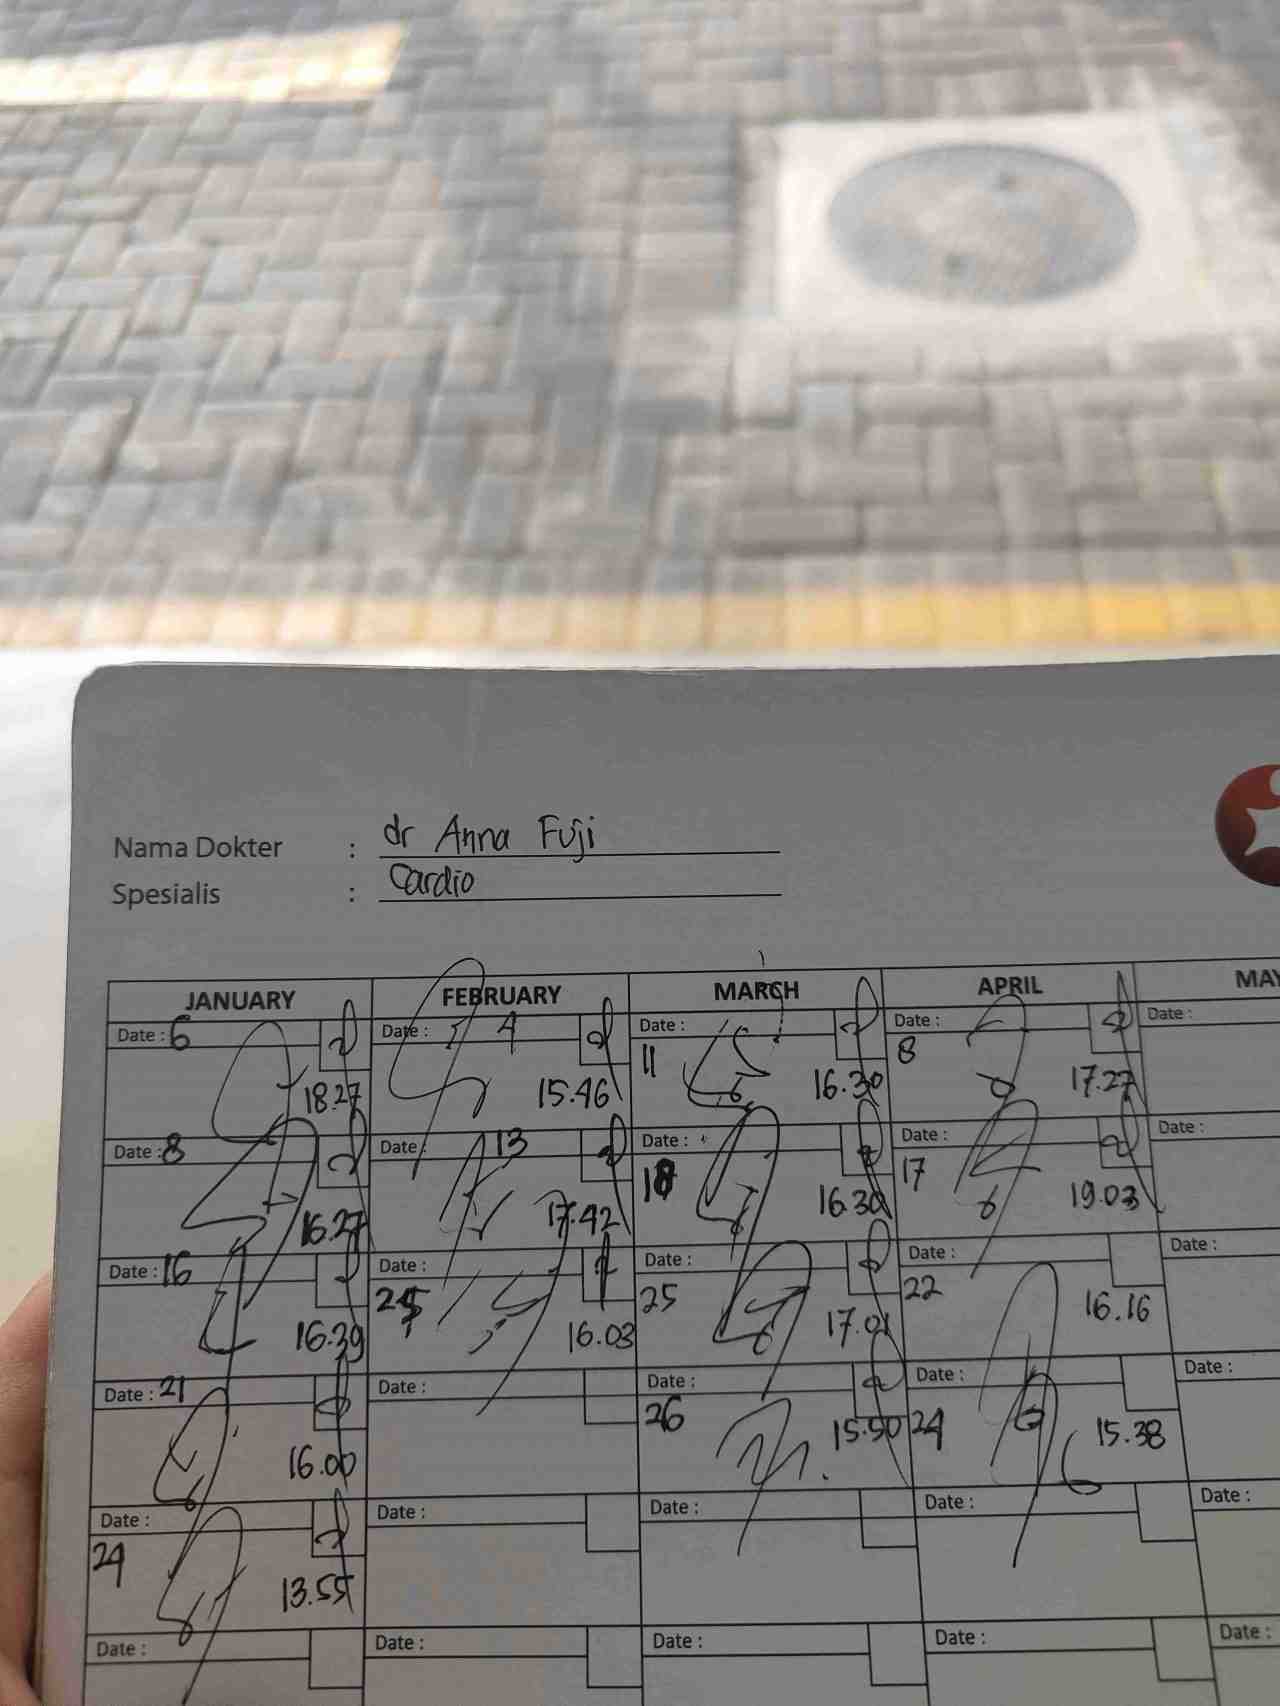 Nama Dokter : dr Anna Fuji
Spesialis : Cardio
JANUARY FEBRUARY MARCH APRIL MAY
Date : 6 Date : 4 Date : Date : Date :
11 8
18.27 15.46 16.30 17.27
Date : 8 Date : 13 Date : Date : Date :
18 17
16.27 17.42 16.30 19.03
Date : 16 Date : Date : Date : Date :
25 25 22
16.39 16.03 17.01 16.16
Date : 21 Date : Date : Date : Date :
26 24
16.00 15.50 15.38
Date : Date : Date : Date : Date :
24
13.55
Date : Date : Date : Date : Date :